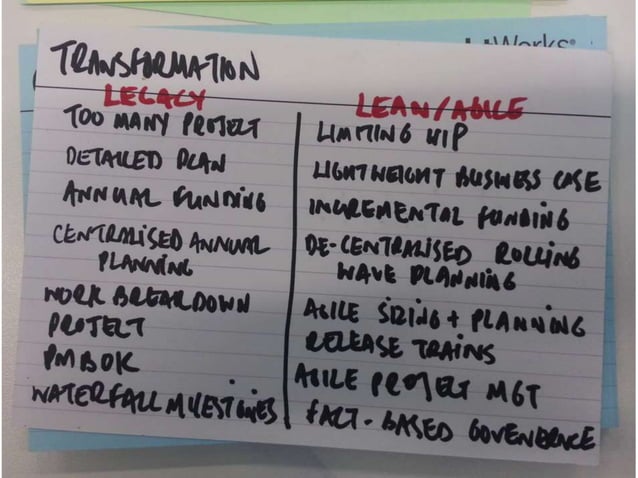 Works
TRANSFORMATION
LEGACY
LEAN/AGILE
TOO MANY PROJECT
LIMITING WIP
DETAILED PLAN
LIGHTWEIGHT BUSINESS CASE
ANNUAL FUNDING
INCREMENTAL FUNDING
CENTRALISED ANNUAL
PLANNING
DE-CENTRALISED ROLLING
WAVE PLANNING
WORK BREAKDOWN
AGILE SIZING + PLANNING
PROJECT
RELEASE TRAINS
PMBOK
AGILE PROJECT MGT
WATERFALL MILESTONES
FACT-BASED GOVENERNCE